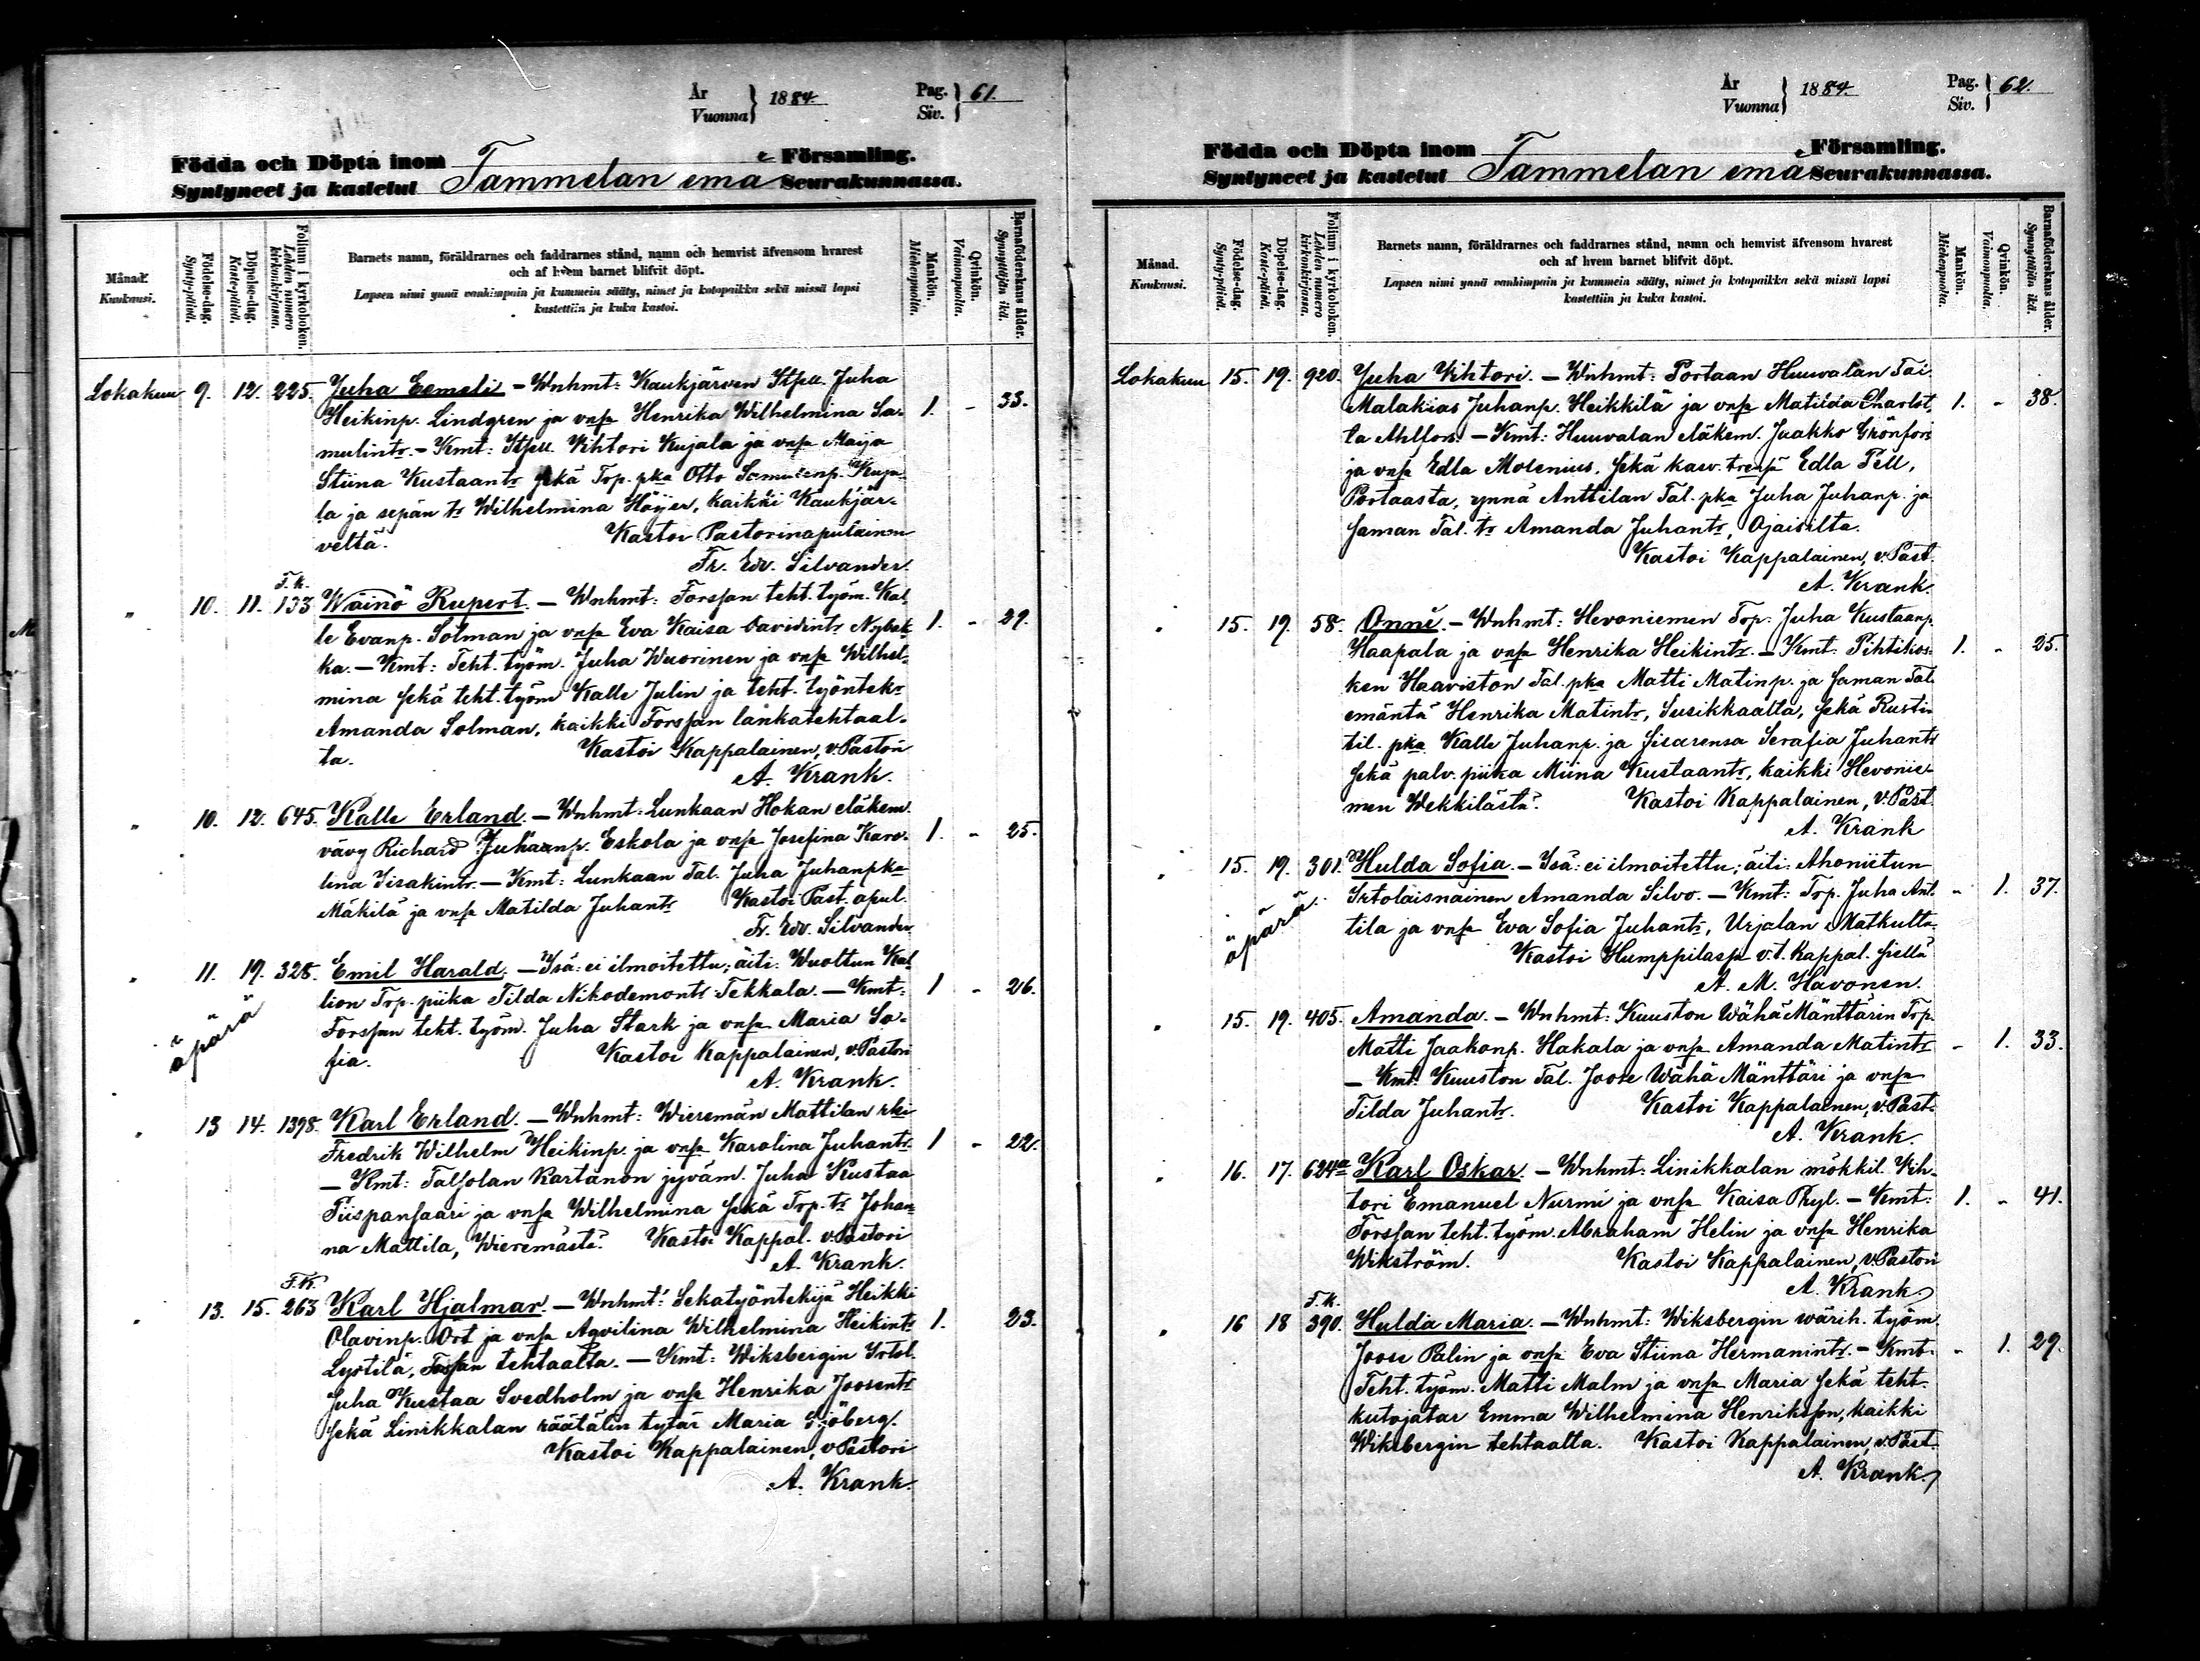 År
Vuonna
1884.
Pag.
Siv.
61.
Födda och Döpta inom
Församling.
Syntyneet ja kastetut
Tammelan emä
Seurakunnassa.
Månad.
Kuukausi.
Födelse-dag.
Synty-päivä.
Döpelse-dag.
Kaste-päivä.
Folium i kyrkoboken.
Lehden numero kirkonkirjassa.
Barnets namn, föräldrarnes och faddrarnes stånd, namn och hemvist äfvensom hvarest
och af hvem barnet blifvit döpt.
Lapsen nimi ynnä vanhimpain ja kummein sääty, nimet ja kotopaikka sekä missä lapsi
kastettiin ja kuka kastoi.
Mankön.
Miehenpuolia.
Qvinkön.
Vaimonpuolia.
Barnaföderskans ålder.
Synnyttäjän ikä.
Lokakuu 9. 12. 225. Juha Eemeli - Wnhmt: Kaukjärven Itsell. Juha
Heikinp. Lindgren ja vnsa Henrika Wilhelmina Sa- 1. - 33.
mulintr. - Kmt: Itsell. Wihtori Kujala ja vnsa Maija
Stiina Kustaantr sekä Trp. pka Otto Samulinp. Kuja-
la ja sepän tr Wilhelmina Höijer, kaikki Kaukjär-
veltä. Kastoi Pastorinapulainen
Fr. Edv. Silvander.
F.K.
" 10. 11. 133 Wäinö Rupert. - Wnhmt: Forssan teht. työm. Kal-
le Evanp. Solman ja vnsa Eva Kaisa Davidintr Nybak- 1. - 29.
ka. - Kmt: Teht. työm. Juha Wuorinen ja vnsa Wilhel-
mina sekä teht. työm Kalle Julin ja teht. työntek.
Amanda Solman, kaikki Forssan lankatehtaal-
ta. Kastoi Kappalainen, v. Pastori
A. Krank.
" 10. 12. 645. Kalle Erland. - Wnhmt: Lunkaan Hokan eläkem.
vävy Richard Juhanp. Eskola ja vnsa Josefina Karo- 1. - 25.
lina Iisakintr. - Kmt: Lunkaan Tal. Juha Juhanpka
Mäkilä ja vnsa Matilda Juhantr Kastoi Past. apul.
Fr. Edv. Silvander
" 11. 19. 328. Emil Harald. - Isä: ei ilmoitettu; äiti: Wuoltun Kal-
lion Trp. piika Tilda Nikodemontr Tekkala. - Kmt: 1 - 26.
äpärä
Forssan teht. työm. Juha Stark ja vnsa Maria So-
fia. Kastoi Kappalainen, v. Pastori
A. Krank.
" 13 14. 1398. Karl Erland. - Wnhmt: Wieremän Mattilan rki
Fredrik Wilhelm Heikinp. ja vnsa Karolina Juhantr. 1 - 22.
- Kmt: Taljolan Kartanon jyväm. Juha Kustaa
Piispansaari ja vnsa Wilhelmina sekä Trp. tr Johan-
na Mattila, Wieremästä. Kastoi Kappal. v. Pastori
A. Krank.
F.K.
" 13. 15. 263 Karl Hjalmar. - Wnhmt: Sekatyöntekijä Heikki
Olavinp. Ort ja vnsa Aqvilina Wilhelmina Heikintr 1. 23.
Lystilä, Forssan tehtaalta. - Kmt: Wiksbergin Irtol.
Juha Kustaa Svedholm ja vnsa Henrika Joosentr
sekä Linikkalan räätälin tytär Maria Sjöberg.
Kastoi Kappalainen, v. Pastori
A. Krank.
År
Vuonna
1884.
Pag.
Siv.
62.
Födda och Döpta inom
Församling.
Syntyneet ja kastetut
Tammelan emä
Seurakunnassa.
Månad.
Kuukausi.
Födelse-dag.
Synty-päivä.
Döpelse-dag.
Kaste-päivä.
Folium i kyrkoboken.
Lehden numero kirkonkirjassa.
Barnets namn, föräldrarnes och faddrarnes stånd, namn och hemvist äfvensom hvarest
och af hvem barnet blifvit döpt.
Lapsen nimi ynnä vanhimpain ja kummein sääty, nimet ja kotopaikka sekä missä lapsi
kastettiin ja kuka kastoi.
Mankön.
Miehenpuolia.
Qvinkön.
Vaimonpuolia.
Barnaföderskans ålder.
Synnyttäjän ikä.
Lokakuu 15. 19. 920. Juha Wihtori. - Wnhmt: Portaan Huuvalan Tal.
Malakias Juhanp. Heikkilä ja vnsa Matilda Charlot- 1. - 38.
ta Ahlfors. - Kmt: Huuvalan eläkem. Jaakko Grönfors
ja vnsa Edla Molenius, sekä kasv. Edla Pell,
Portaasta, ynnä Anttilan Tal. pka Juha Juhanp. ja
saman Tal. tr Amanda Juhantr, Ojaisilta.
Kastoi Kappalainen, v. Past.
A. Krank.
" 15. 19. 58. Onni. - Wnhmt: Hevoniemen Trp. Juha Kustaanp.
Haapala ja vnsa Henrika Heikintr. - Kmt: Pihtikos- 1. - 25.
ken Haaviston Tal. pka Matti Matinp. ja saman Tal.
emäntä Henrika Matintr, Susikkaalta, sekä Rusti-
til. pka Kalle Juhanp. ja sisarensa Serafia Juhantr
sekä palv. piika Miina Kustaantr, kaikki Hevonie-
men Wekkilästä. Kastoi Kappalainen, v. Past.
A. Krank
" 15 19. 301. Hulda Sofia. - Isä: ei ilmoitettu; äiti: Ahoniitun
Irtolaisnainen Amanda Silvo. - Kmt: Trp. Juha Ant- - 1. 37.
äpärä
tila ja vnsa Eva Sofia Juhantr, Urjalan Matkulta.
Kastoi Humppilassa v.t. Kappal. siellä
A. M. Havonen.
" 15. 19. 405. Amanda. - Wnhmt: Kuuston Wähä Mänttärin Trp.
Matti Jaakonp. Hakala ja vnsa Amanda Matintr - 1. 33.
- Kmt: Kuuston Tal. Joose Wähä Mänttäri ja vnsa
Tilda Juhantr. Kastoi Kappalainen, v. Past.
A. Krank.
" 16. 17. 624a Karl Oskar. - Wnhmt: Linikkalan mökkil. Wih-
tori Emanuel Nurmi ja vnsa Kaisa Phyl. - Kmt: 1. - 41.
Forssan teht. työm. Abraham Helin ja vnsa Henrika
Wikström. Kastoi Kappalainen, v. Pastori
A. Krank
F.K.
" 16 18 390. Hulda Maria. - Wnhmt: Wiksbergin wärih. työm
Joose Palin ja vnsa Eva Stiina Hermanintr. - Kmt: - 1. 29.
Teht. työm. Matti Malm ja vnsa Maria sekä teht.
kutojatar Emma Wilhelmina Henriksson, kaikki
Wiksbergin tehtaalta. Kastoi Kappalainen, v. Past.
A. Krank.